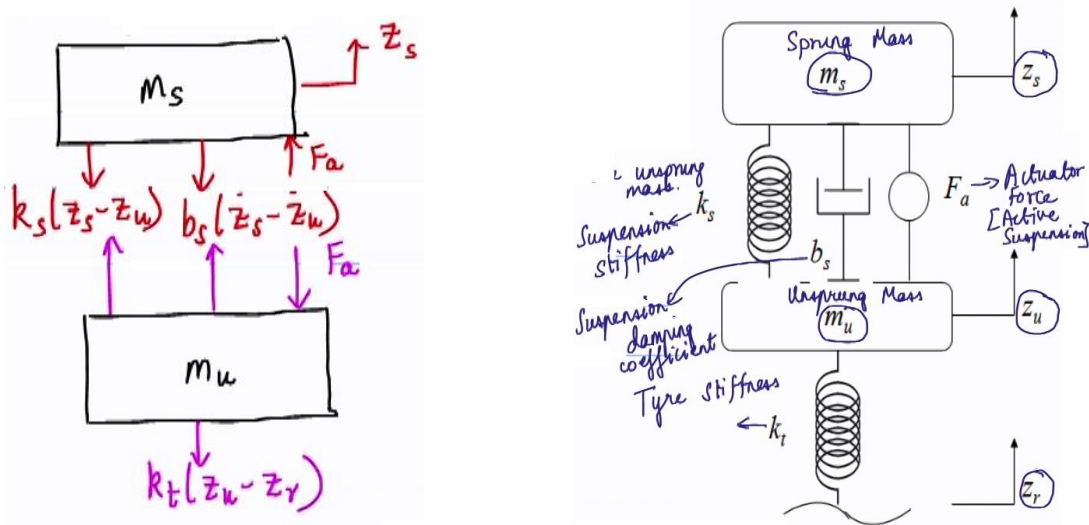 m_s
z_s
F_a
k_s(z_s-z_u) b_s(ż_s-ż_u)
F_a
m_u
k_t(z_u-z_r)
Sprung Mass
m_s
z_s
unsprung
mass.
k_s
Suspension
stiffness
F_a → Actuator
force
[Active
Suspension]
b_s
Suspension
damping
coefficient
Unsprung Mass
m_u
z_u
Tyre stiffness
← k_t
z_r